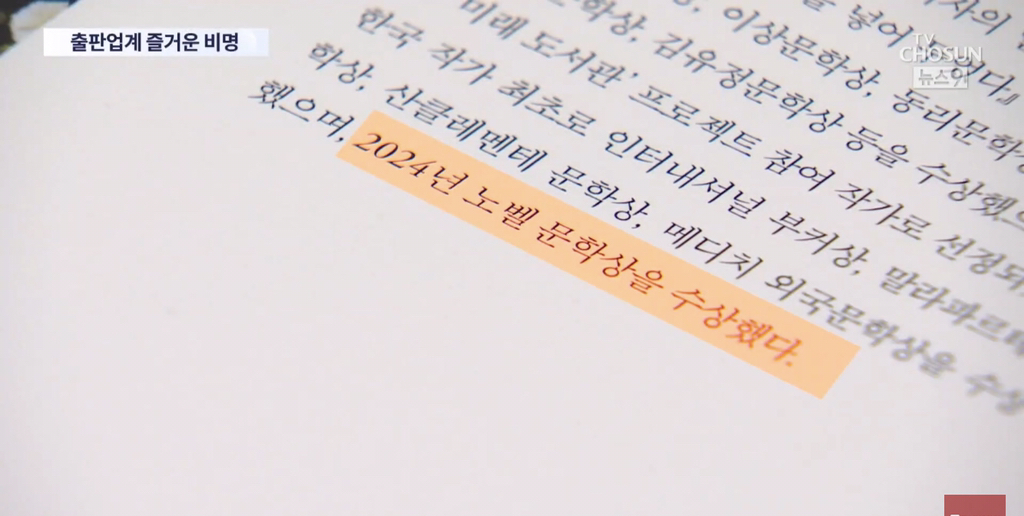 출판업계 즐거운 비명
TV
CHOSUN
뉴스9
을 넣어
문학상, 이상문학상, 동리문학상
김유정문학상 등을 수상했으
미래 도서관' 프로젝트 참여 작가로 선정되
한국 작가 최초로 인터내셔널 부커상, 말라파르테
학상, 산클레멘테 문학상, 메디치 외국문학상을 수상
했으며, 2024년 노벨 문학상을 수상했다.